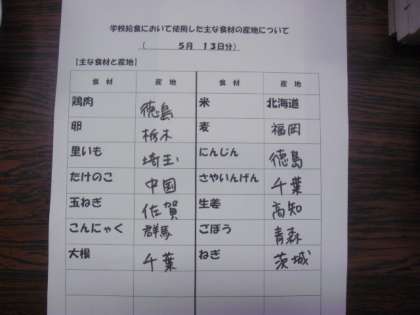 学校給食において使用した主な食材の産地について
（ 5月 13日分）
【主な食材と産地】
食材 産地 食材 産地
鶏肉 徳島 米 北海道
卵 栃木 麦 福岡
里いも 埼玉 にんじん 徳島
たけのこ 中国 さやいんげん 千葉
玉ねぎ 佐賀 生姜 高知
こんにゃく 群馬 ごぼう 青森
大根 千葉 ねぎ 茨城